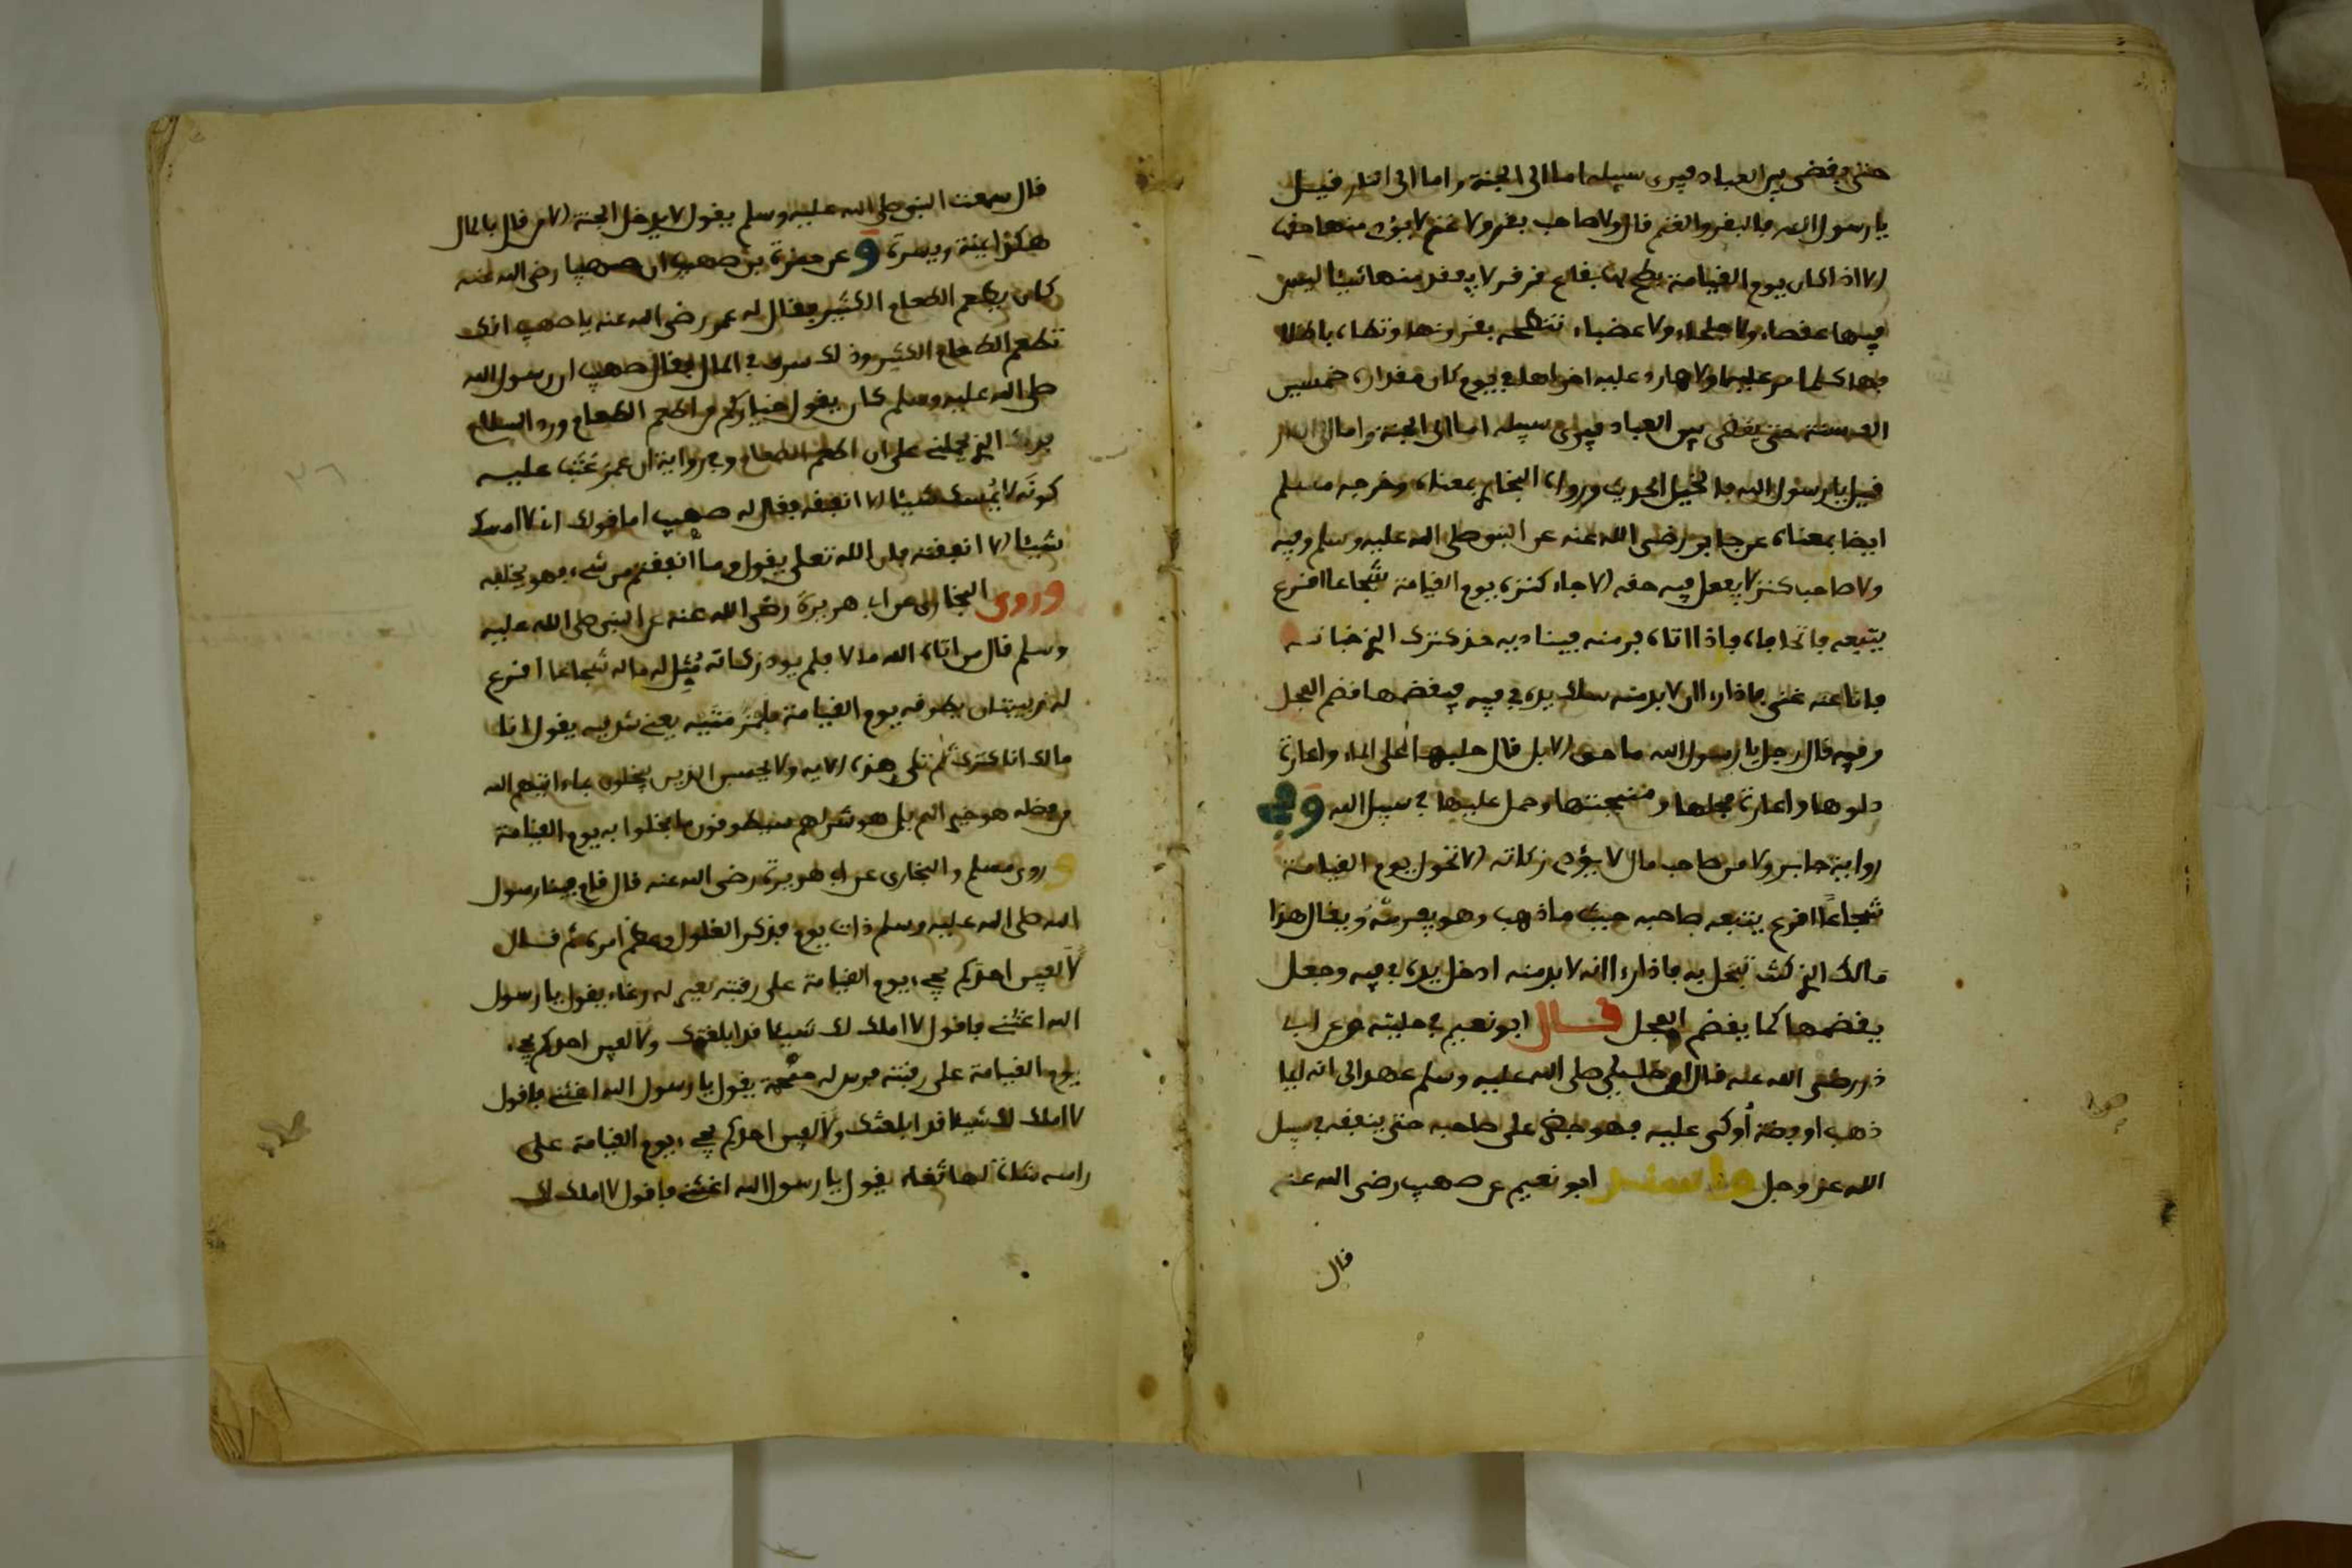 حتى يقضى بين العباد فيرى سبيله اما الى الجنة واما الى النار قيل
يا رسول الله فالبقر والغنم قال ولا صاحب بقر ولا غنم لا يؤدى منها حقها
الا اذا كان يوم القيامة بطح لها بقاع قرقر لا يفقد منها شيئا ليس
فيها عقصاء ولا جلحاء ولا عضباء تنطحه بقرونها وتطاه باظلا
فها كلما مر عليه اولاها رد عليه اخراها في يوم كان مقداره خمسين
الف سنة حتى يقضى بين العباد فيرى سبيله اما الى الجنة واما الى النار
قيل يا رسول الله فالخيل الحديث ورواه البخارى بمعناه وخرجه مسلم
ايضا بمعناه عن جابر رضى الله عنه عن النبى صلى الله عليه وسلم وفيه
ولا صاحب كنز لا يفعل فيه حقه الا جاء كنزه يوم القيامة شجاعا اقرع
يتبعه فاتحا فاه فاذا اتاه فر منه فيناديه خذ كنزك الذى خباته
فانا عنه غنى فاذا راى ان لا بد منه سلك يده في فيه فيقضمها قضم الفحل
وفيه قال رجل يا رسول الله ما حق الابل قال حلبها على الماء واعارة
دلوها واعارة فحلها ومنيحتها وحمل عليها في سبيل الله وفي
رواية جابر ولا من صاحب مال لا يؤدى زكاته الا تحول يوم القيامة
شجاعا اقرع يتبعه صاحبه حيث ما ذهب وهو يفر منه ويقال هذا
مالك الذى كنت تبخل به فاذا راى انه لا بد منه ادخل يده في فيه وجعل
يقضمها كما يقضم الفحل قال ابو نعيم في حليته عن ابى
ذر رضى الله عنه قال ان خليلى صلى الله عليه وسلم عهد الى انه ايما
ذهب او فضة أوكى عليه فهو جمر على صاحبه حتى ينفقه في سبيل
الله عز وجل ابو نعيم عن صهيب رضى الله عنه
قال
قال سمعت النبى صلى الله عليه وسلم يقول لا يدخل الجنة الا من قال بالمال
هكذا يمنة ويسرة و عن حمزة بن صهيب ان صهيبا رضى الله عنه
كان يطعم الطعام الكثير فقال له عمر رضى الله عنه يا صهيب انك
تطعم الطعام الكثير وذلك سرف في المال فقال صهيب ان رسول الله
صلى الله عليه وسلم كان يقول خياركم من اطعم الطعام ورد السلام
فذلك الذى يحملنى على ان اطعم الطعام وفي رواية ان عمر عتب عليه
كونه لا يمسك شيئا الا انفقه فقال له صهيب اما قولك انى لا امسك
شيئا الا انفقته فان الله تعلى يقول وما انفقتم من شىء فهو يخلفه
وروى البخارى عن ابى هريرة رضى الله عنه عن النبى صلى الله عليه
وسلم قال من اتاه الله مالا فلم يود زكاته مثل له ماله شجاعا اقرع
له زبيبتان يطوقه يوم القيامة يعنى شدقيه يقول انا
مالك انا كنزك ثم تلى هذه الاية ولا يحسبن الذين يبخلون بماء اتيهم الله
من فضله هو خير الهم بل هو شر لهم سيطوقون ما بخلوا به يوم القيامة
و روى مسلم والبخارى عن ابى هريرة رضى الله عنه قال قام فينا رسول
الله صلى الله عليه وسلم ذات يوم فذكر الغلول وعظم امره ثم قال
لا الفين احدكم يجىء يوم القيامة على رقبته بعير له رغاء يقول يا رسول
الله اغثنى فاقول لا املك لك شيئا قد ابلغتك ولا الفين احدكم يجىء
يوم القيامة على رقبته فرس له حمحمة يقول يا رسول الله اغثنى فاقول
لا املك لك شيئا قد ابلغتك ولا الفين احدكم يجىء يوم القيامة على
راسه شاة لها ثغاء يقول يا رسول الله اغثنى فاقول لا املك لك